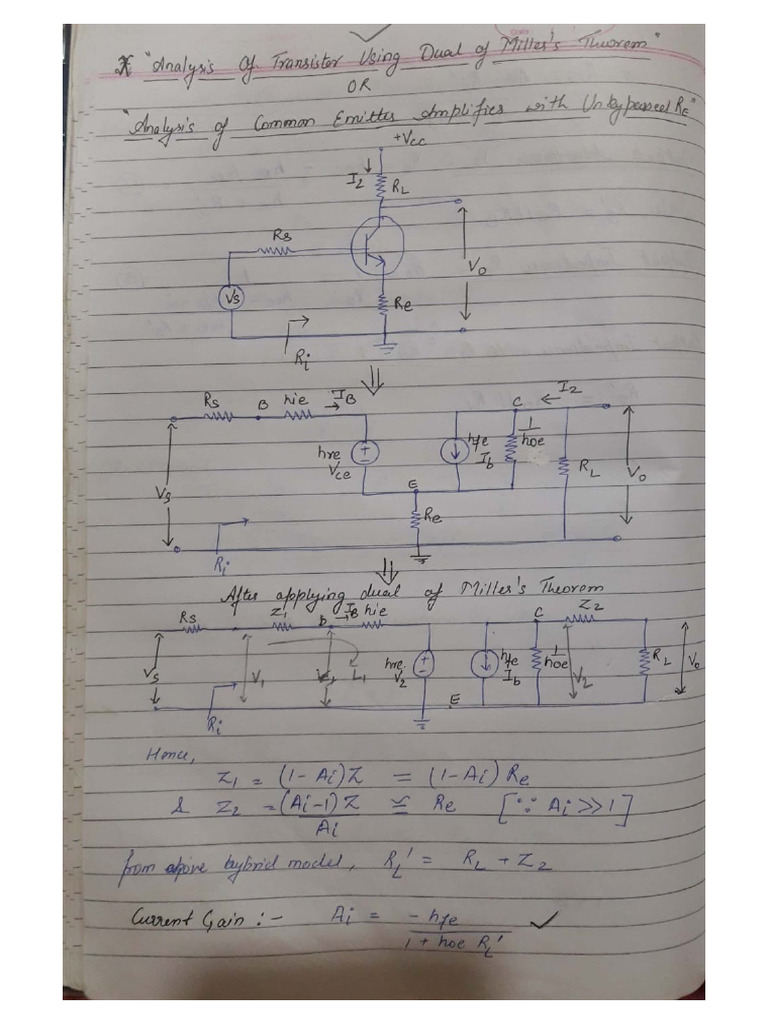 "Analysis Of Transistor Using Dual of Miller's Theorem"
OR
"Analysis of Common Emitter Amplifier with Unbypassed RE"
+Vcc
I2
RL
Rs
Vs
Vo
Re
Ri
⇓
Rs B hie IB C I2
hre Vce
hfe Ib
1/hoe
RL
Vo
Vs
E
Re
Ri
⇓
After applying dual of Miller's Theorem
Rs Z1 B IB hie C Z2
Vs V1 L1
hre V2
hfe Ib
1/hoe
V2
RL
Vo
Ri
E
Hence,
Z1 = (1 - Ai)Z = (1 - Ai) Re
& Z2 = (Ai - 1) Z / Ai ≌ Re [∵ Ai >> 1]
from above hybrid model, RL' = RL + Z2
Current Gain :- Ai = -hfe / 1 + hoe RL' ✓